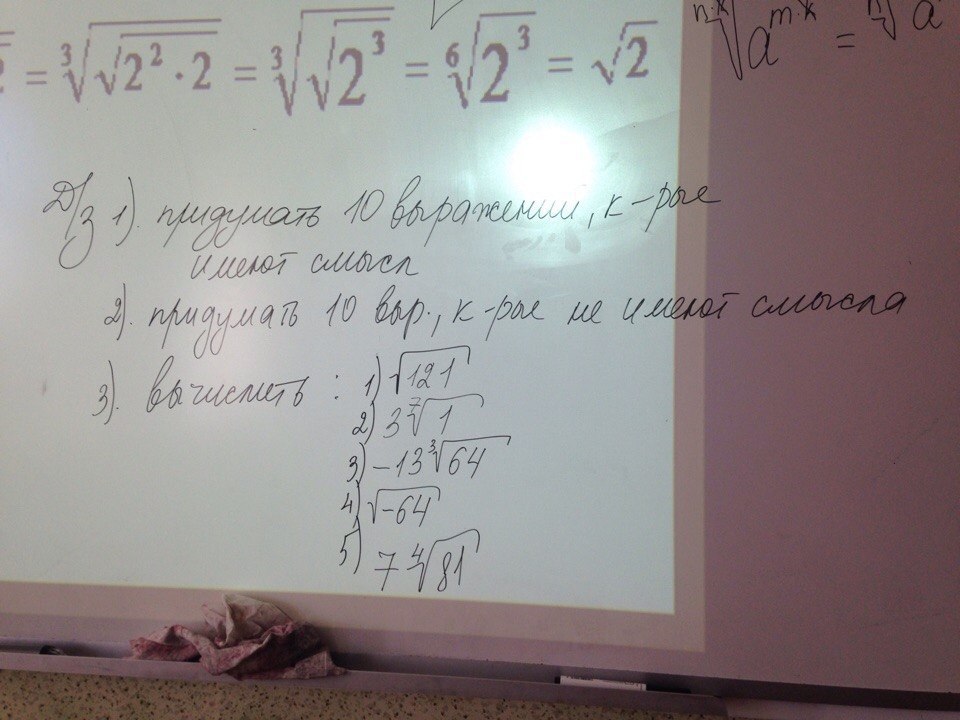 = ∛(√(2² · 2)) = ∛(√(2³)) = ⁶√(2³) = √2
ⁿ·ᵏ√(aᵐ·ᵏ) = ⁿ√a
Д/З 1). придумать 10 выражений, к-рые
имеют смысл
2). придумать 10 выр., к-рые не имеют смысла
3). вычислить : 1) √121
2) 3 ⁷√1
3) -13 ∛64
4) √-64
5) 7 ⁴√81